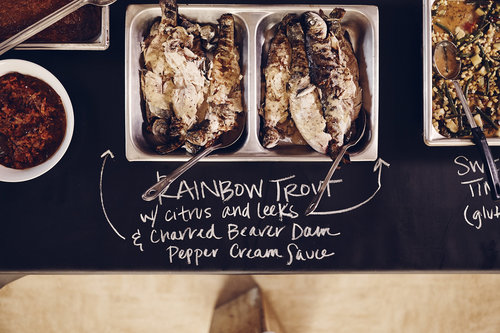 RAINBOW TROUT
w/ citrus and leeks
& Charred Beaver Dam
Pepper Cream Sauce
(glu